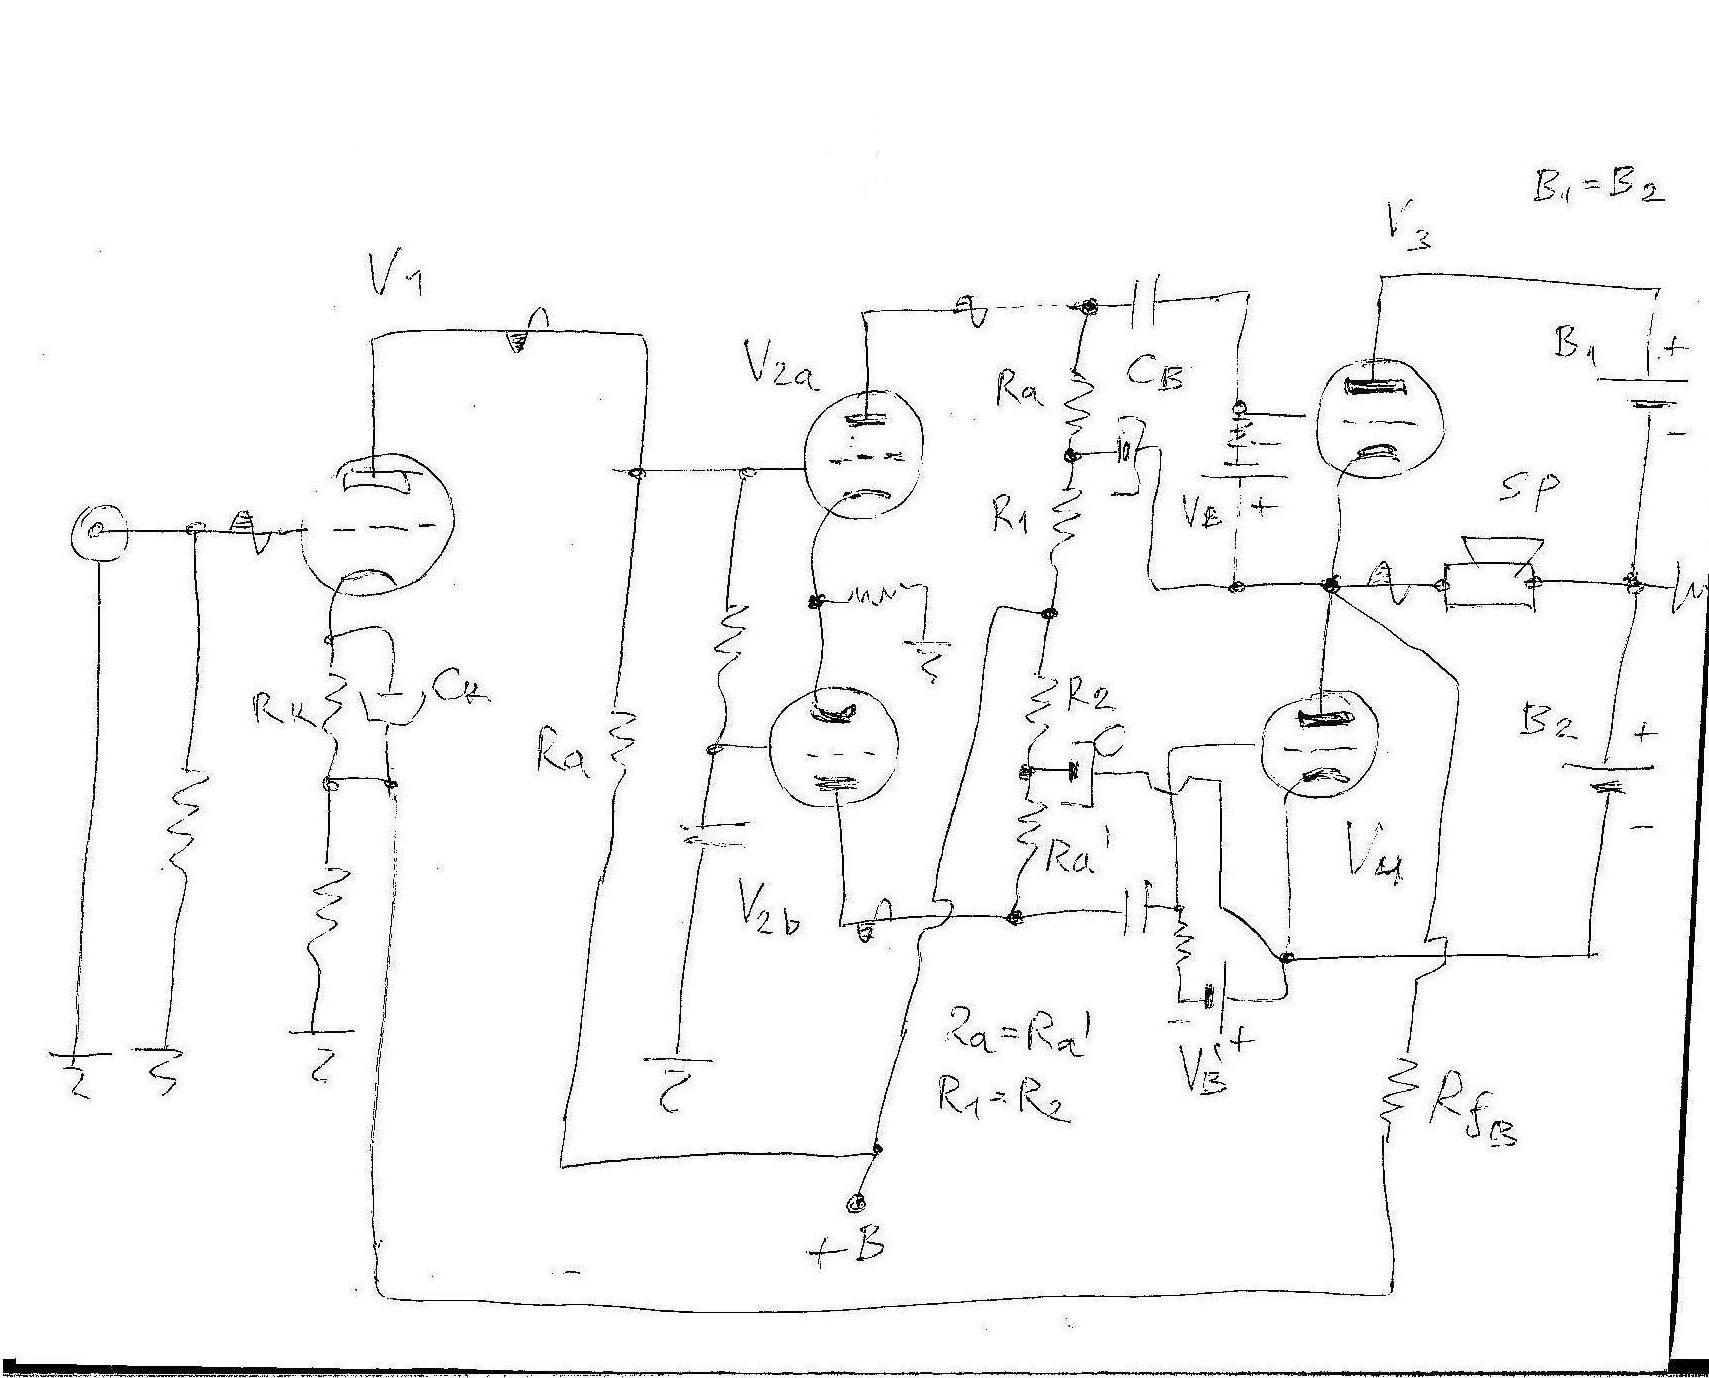 B1=B2
V3
V1
B1
+
-
V2a
Ra
CB
R1
VB
+
SP
RK
CK
Ra
R2
C
B2
+
-
Ra'
V4
V2b
Ra=Ra'
R1=R2
-
VB'
+
RfB
+B